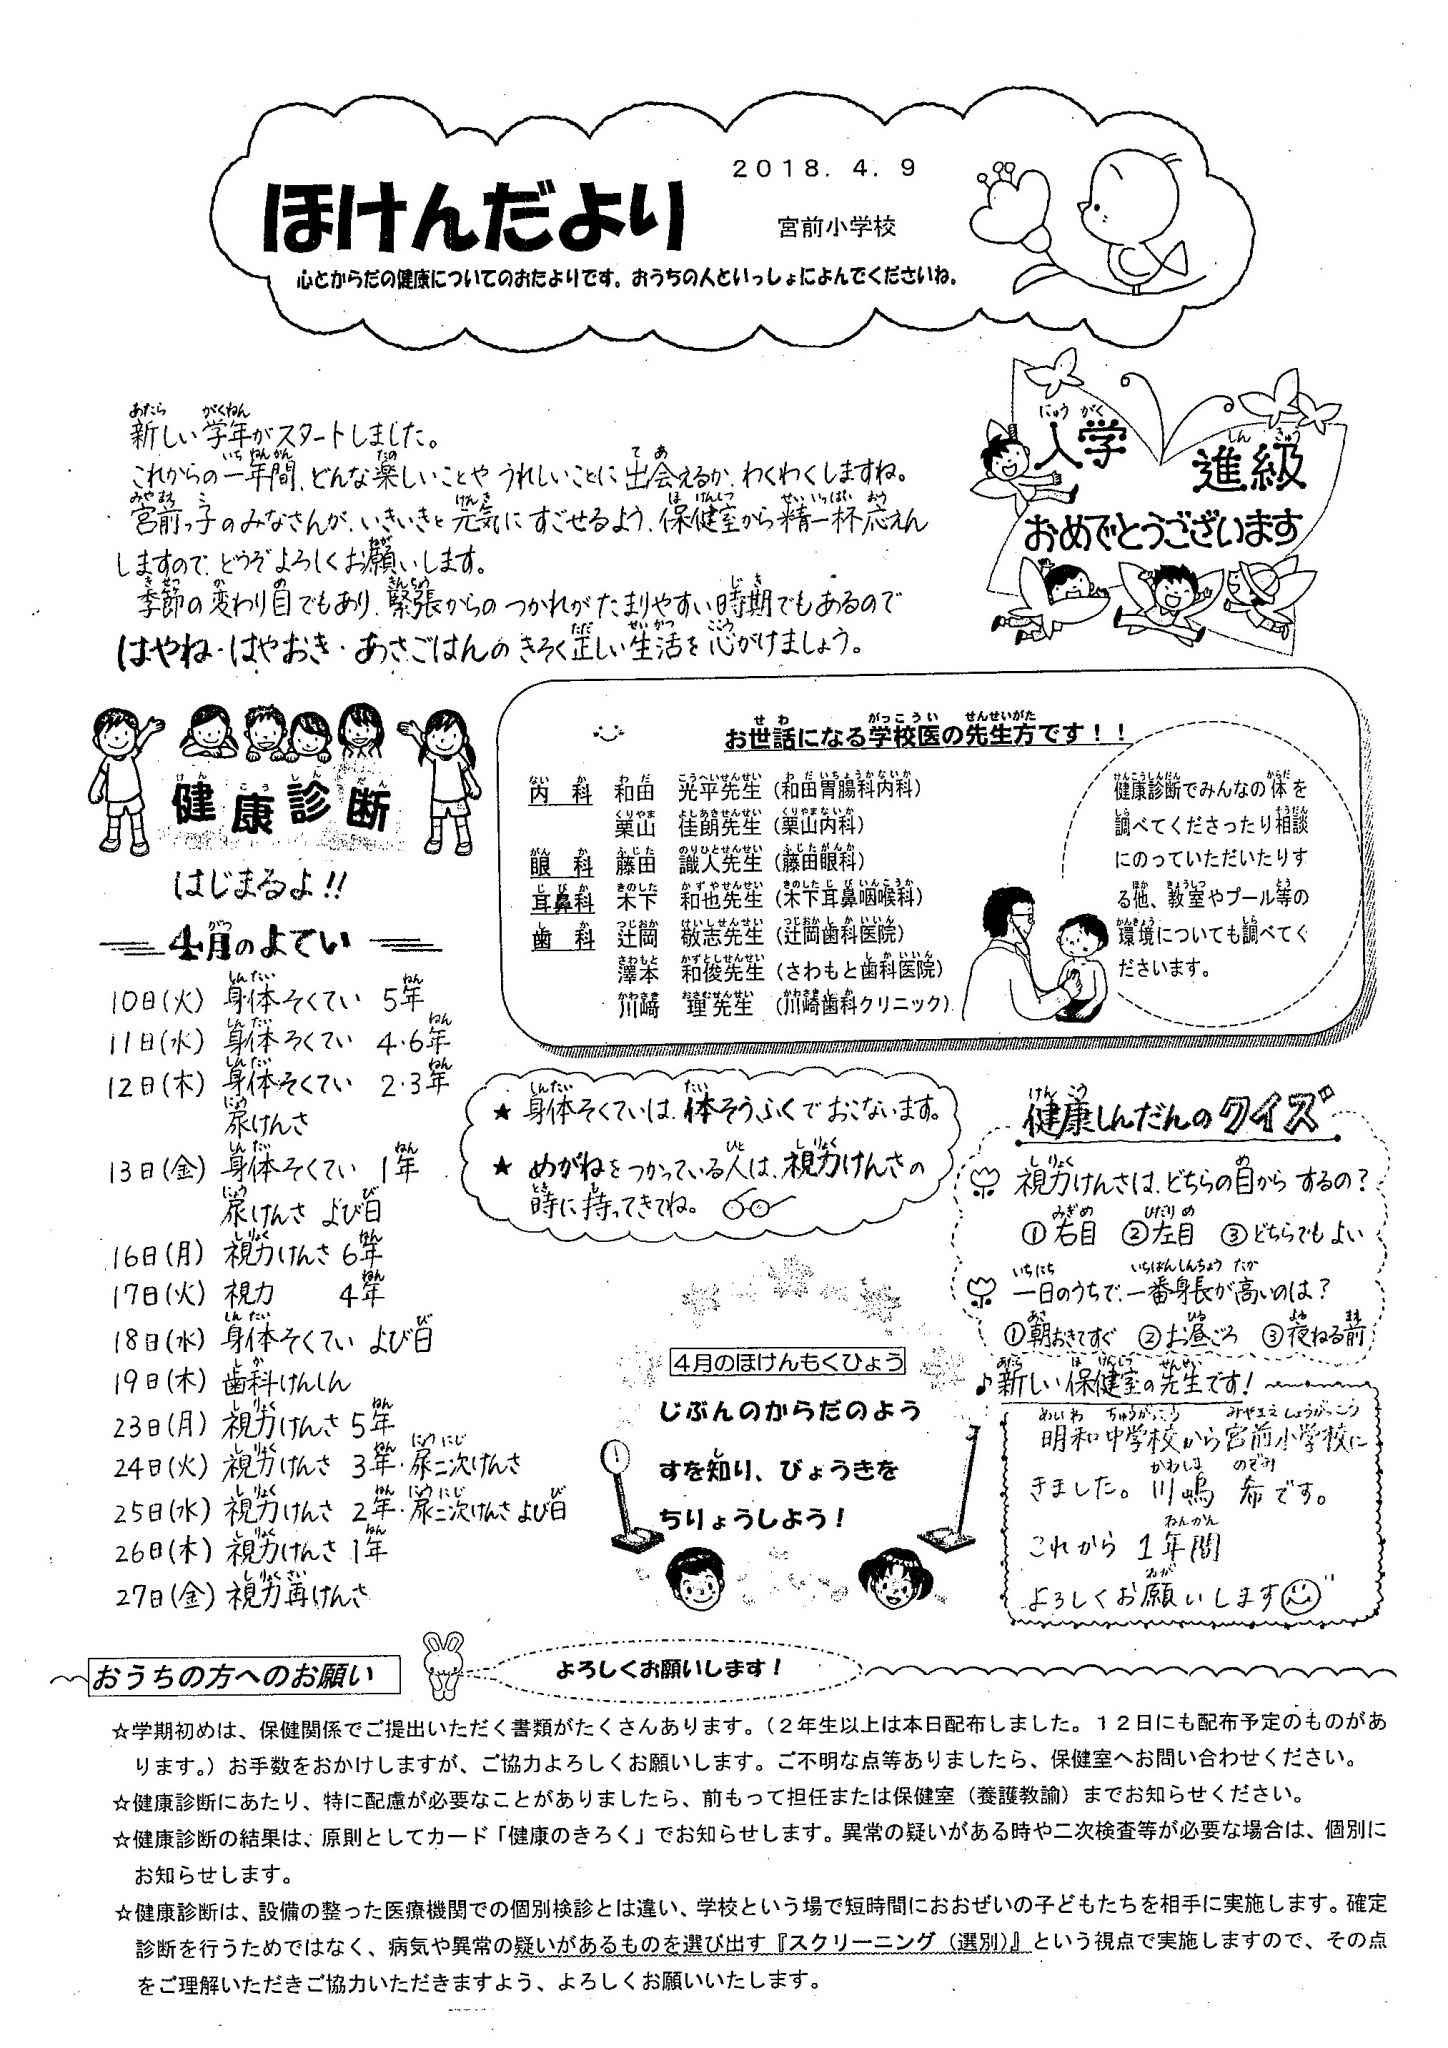 2018.4.9
ほけんだより
宮前小学校
心とからだの健康についてのおたよりです。おうちの人といっしょによんでくださいね。
新しい学年がスタートしました。
これからの一年間、どんな楽しいことや うれしいことに出会えるか、わくわくしますね。
宮前っ子のみなさんが、いきいきと元気にすごせるよう、保健室から精一杯応えん
しますので、どうぞよろしくお願いします。
季節の変わり目でもあり、緊張からの つかれがたまりやすい時期でもあるので
はやね・はやおき・あさごはんの きそく正しい生活を心がけましょう。
入学
進級
おめでとうございます
健康診断
はじまるよ!!
4月のよてい
10日(火) 身体そくてい 5年
11日(水) 身体そくてい 4・6年
12日(木) 身体そくてい 2・3年
尿けんさ
13日(金) 身体そくてい 1年
尿けんさ よび日
16日(月) 視力けんさ 6年
17日(火) 視力 4年
18日(水) 身体そくてい よび日
19日(木) 歯科けんしん
23日(月) 視力けんさ 5年
24日(火) 視力けんさ 3年・尿二次けんさ
25日(水) 視力けんさ 2年・尿二次けんさ よび日
26日(木) 視力けんさ 1年
27日(金) 視力再けんさ
お世話になる学校医の先生方です！！
内 科 和田 光平先生 (和田胃腸科内科)
栗山 佳朗先生 (栗山内科)
眼 科 藤田 識人先生 (藤田眼科)
耳鼻科 木下 和也先生 (木下耳鼻咽喉科)
歯 科 辻岡 敬志先生 (辻岡歯科医院)
澤本 和俊先生 (さわもと歯科医院)
川﨑 理先生 (川﨑歯科クリニック)
健康診断でみんなの体を
調べてくださったり相談
にのっていただいたりす
る他、教室やプール等の
環境についても調べてく
ださいます。
★ 身体そくていは、体そうふくで おこないます。
★ めがねをつかっている人は、視力けんさの
時に持ってきてね。
健康しんだんのクイズ
視力けんさは、どちらの目から するの？
①右目 ②左目 ③どちらでもよい
一日のうちで、一番身長が高いのは？
①朝おきてすぐ ②お昼ごろ ③夜ねる前
4月のほけんもくひょう
じぶんのからだのよう
すを知り、びょうきを
ちりょうしよう！
♪新しい保健室の先生です!
明和中学校から宮前小学校に
きました。川嶋 希です。
これから 1年間
よろしくお願いします
おうちの方へのお願い
よろしくお願いします！
☆学期初めは、保健関係でご提出いただく書類がたくさんあります。（２年生以上は本日配布しました。１２日にも配布予定のものがあ
ります。）お手数をおかけしますが、ご協力よろしくお願いします。ご不明な点等ありましたら、保健室へお問い合わせください。
☆健康診断にあたり、特に配慮が必要なことがありましたら、前もって担任または保健室（養護教諭）までお知らせください。
☆健康診断の結果は、原則としてカード「健康のきろく」でお知らせします。異常の疑いがある時や二次検査等が必要な場合は、個別に
お知らせします。
☆健康診断は、設備の整った医療機関での個別検診とは違い、学校という場で短時間におおぜいの子どもたちを相手に実施します。確定
診断を行うためではなく、病気や異常の疑いがあるものを選び出す『スクリーニング（選別）』という視点で実施しますので、その点
をご理解いただきご協力いただきますよう、よろしくお願いいたします。